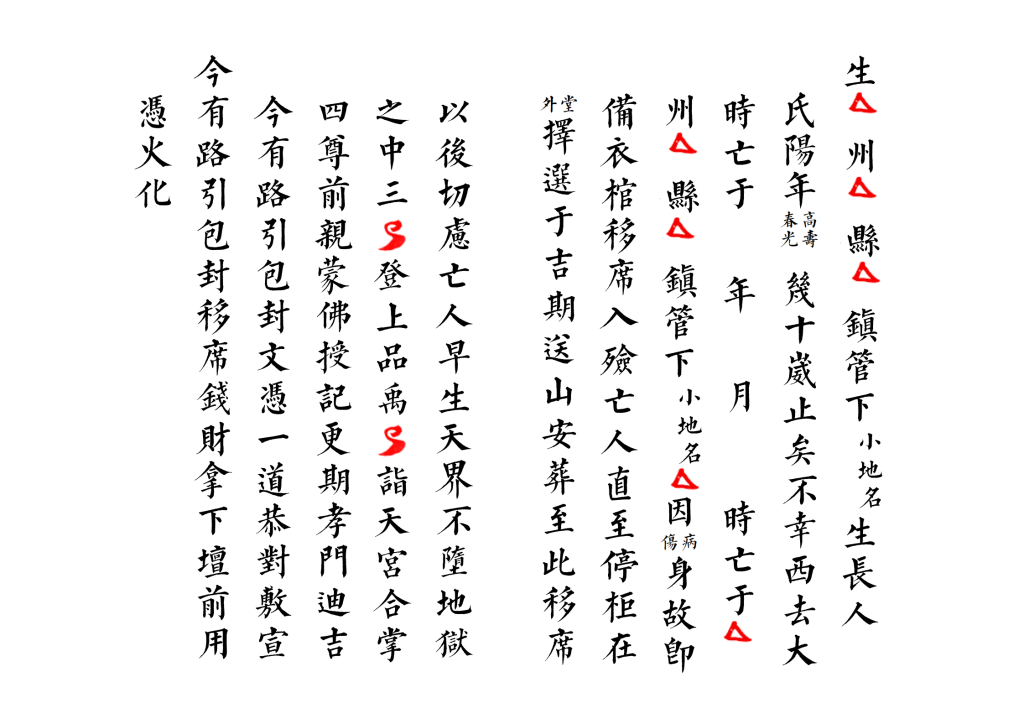 生△州△縣△鎮管下小地名生長人
氏陽年高壽春光幾十嵗止矣不幸西去大
時亡于年月時亡于△
州△縣△鎮管下小地名△因病傷身故卽
備衣棺移席入殮亡人直至停柜在
堂外擇選于吉期送山安葬至此移席
以後切慮亡人早生天界不墮地獄
之中三登上品禹詣天宮合掌
四尊前親蒙佛授記更期孝門迪吉
今有路引包封文憑一道恭對敷宣
今有路引包封移席錢財拿下壇前用
憑火化